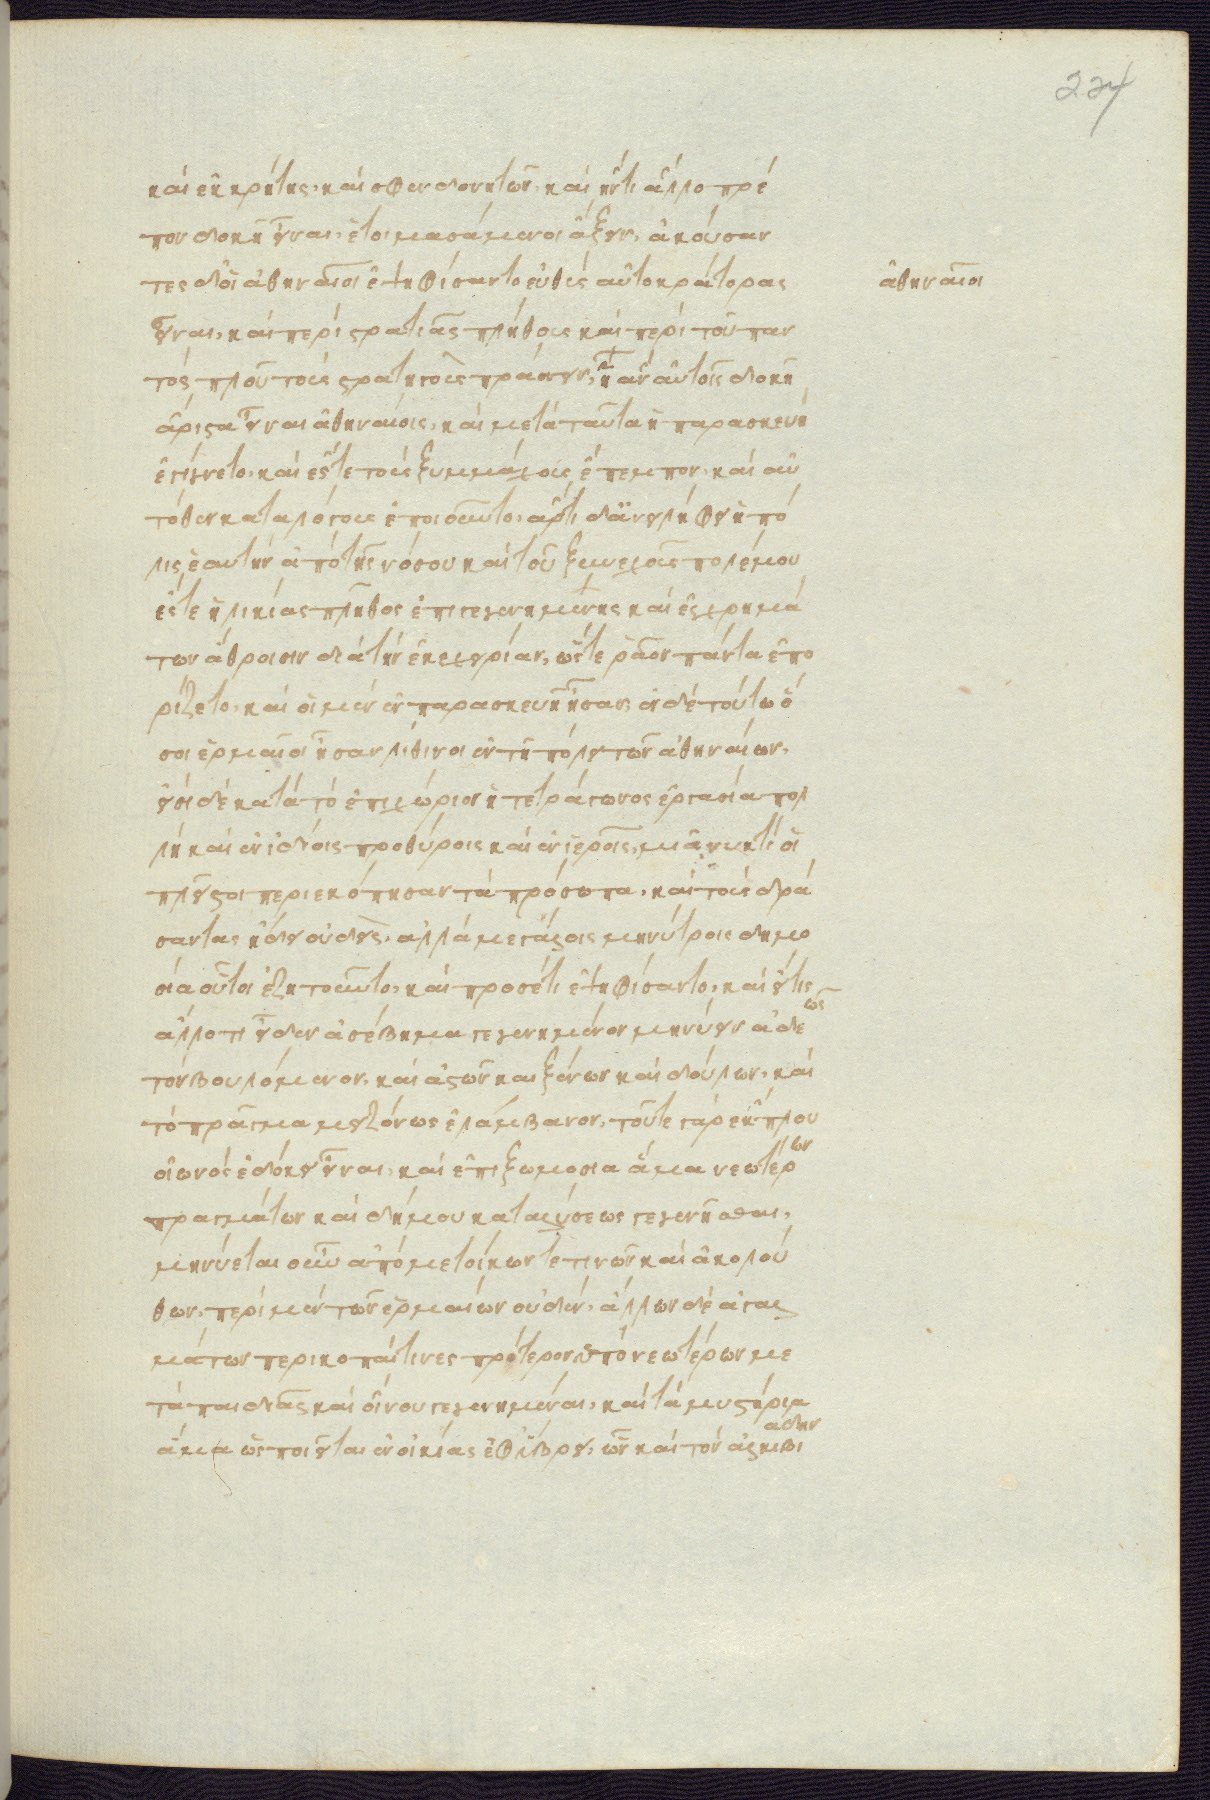 224
καὶ ἐκ κρήτης, καὶ σφενδονητῶν, καὶ ἤν τι ἄλλο πρέ
πον δοκῇ εἶναι, ἑτοιμασάμενοι ἄξειν, ἀκούσαν
τες δ' οἱ ἀθηναῖοι ἐψηφίσαντο εὐθὺς αὐτοκράτορας
ἀθηναῖοι
εἶναι, καὶ περὶ στρατιᾶς πλήθους καὶ περὶ τοῦ παν
τὸς πλοῦ τοὺς στρατηγοὺς πράσσειν, ᾗ ἂν αὐτοῖς δοκῇ
ἄριστα εἶναι ἀθηναίοις, καὶ μετὰ ταῦτα ἡ παρασκευὴ
ἐγίγνετο, καὶ ἔς τε τοὺς ξυμμάχους ἔπεμπον, καὶ αὐ
τόθεν καταλόγους ἐποιοῦντο, ἄρτι δ' ἀνειλήφει ἡ πό
λις ἑαυτὴν ἀπὸ τῆς νόσου καὶ τοῦ ξυνεχοῦς πολέμου
ἔς τε ἡλικίας πλῆθος ἐπιγεγενημένης καὶ ἐς χρημά
των ἄθροισιν διὰ τὴν ἐκεχειρίαν, ὥστε ῥᾷον πάντα ἐπο
ρίζετο, καὶ οἱ μὲν ἐν παρασκευῇ ἦσαν, ἐν δὲ τούτῳ ὅ
σοι ἑρμαῖ οἱ ἦσαν λίθινοι ἐν τῇ πόλει τῶν ἀθηναίων,
εἰσὶ δὲ κατὰ τὸ ἐπιχώριον ἡ τετράγωνος ἐργασία πολ
λὴ καὶ ἐν ἰδίοις προθύροις καὶ ἐν ἱεροῖς, μιᾷ νυκτὶ οἱ
πλεῖστοι περιεκόπησαν τὰ πρόσωπα, καὶ τοὺς δρά
σαντας ᾔδει οὐδείς, ἀλλὰ μεγάλοις μηνύτροις δημο
σίᾳ οὗτοι ἐζητοῦντο, καὶ προσέτι ἐψηφίσαντο, καὶ εἴ τις
ἄλλο τι εἶδεν ἀσέβημα γεγενημένον μηνύειν ἀδεῶς
τὸν βουλόμενον, καὶ ἀστῶν καὶ ξένων καὶ δούλων, καὶ
τὸ πρᾶγμα μειζόνως ἐλάμβανον, τοῦ τε γὰρ ἔκπλου
οἰωνὸς ἐδόκει εἶναι, καὶ ἐπὶ ξωμοσία ἅμα νεωτέρων
πραγμάτων καὶ δήμου καταλύσεως γεγενῆσθαι,
μηνύεται οὖν ἀπὸ μετοίκων τέ τινων καὶ ἀκολού
θων, περὶ μὲν τῶν ἑρμαίων οὐδέν, ἄλλων δὲ ἀγαλ
μάτων περικοπαί τινες πρότερον ὑπὸ νεωτέρων με
τὰ παιδιᾶς καὶ οἴνου γεγενημέναι, καὶ τὰ μυστήρια
ἅμα ὡς ποιεῖται ἐν οἰκίαις ἐφ' ὕβρει, ὧν καὶ τὸν ἀλκιβιάδην